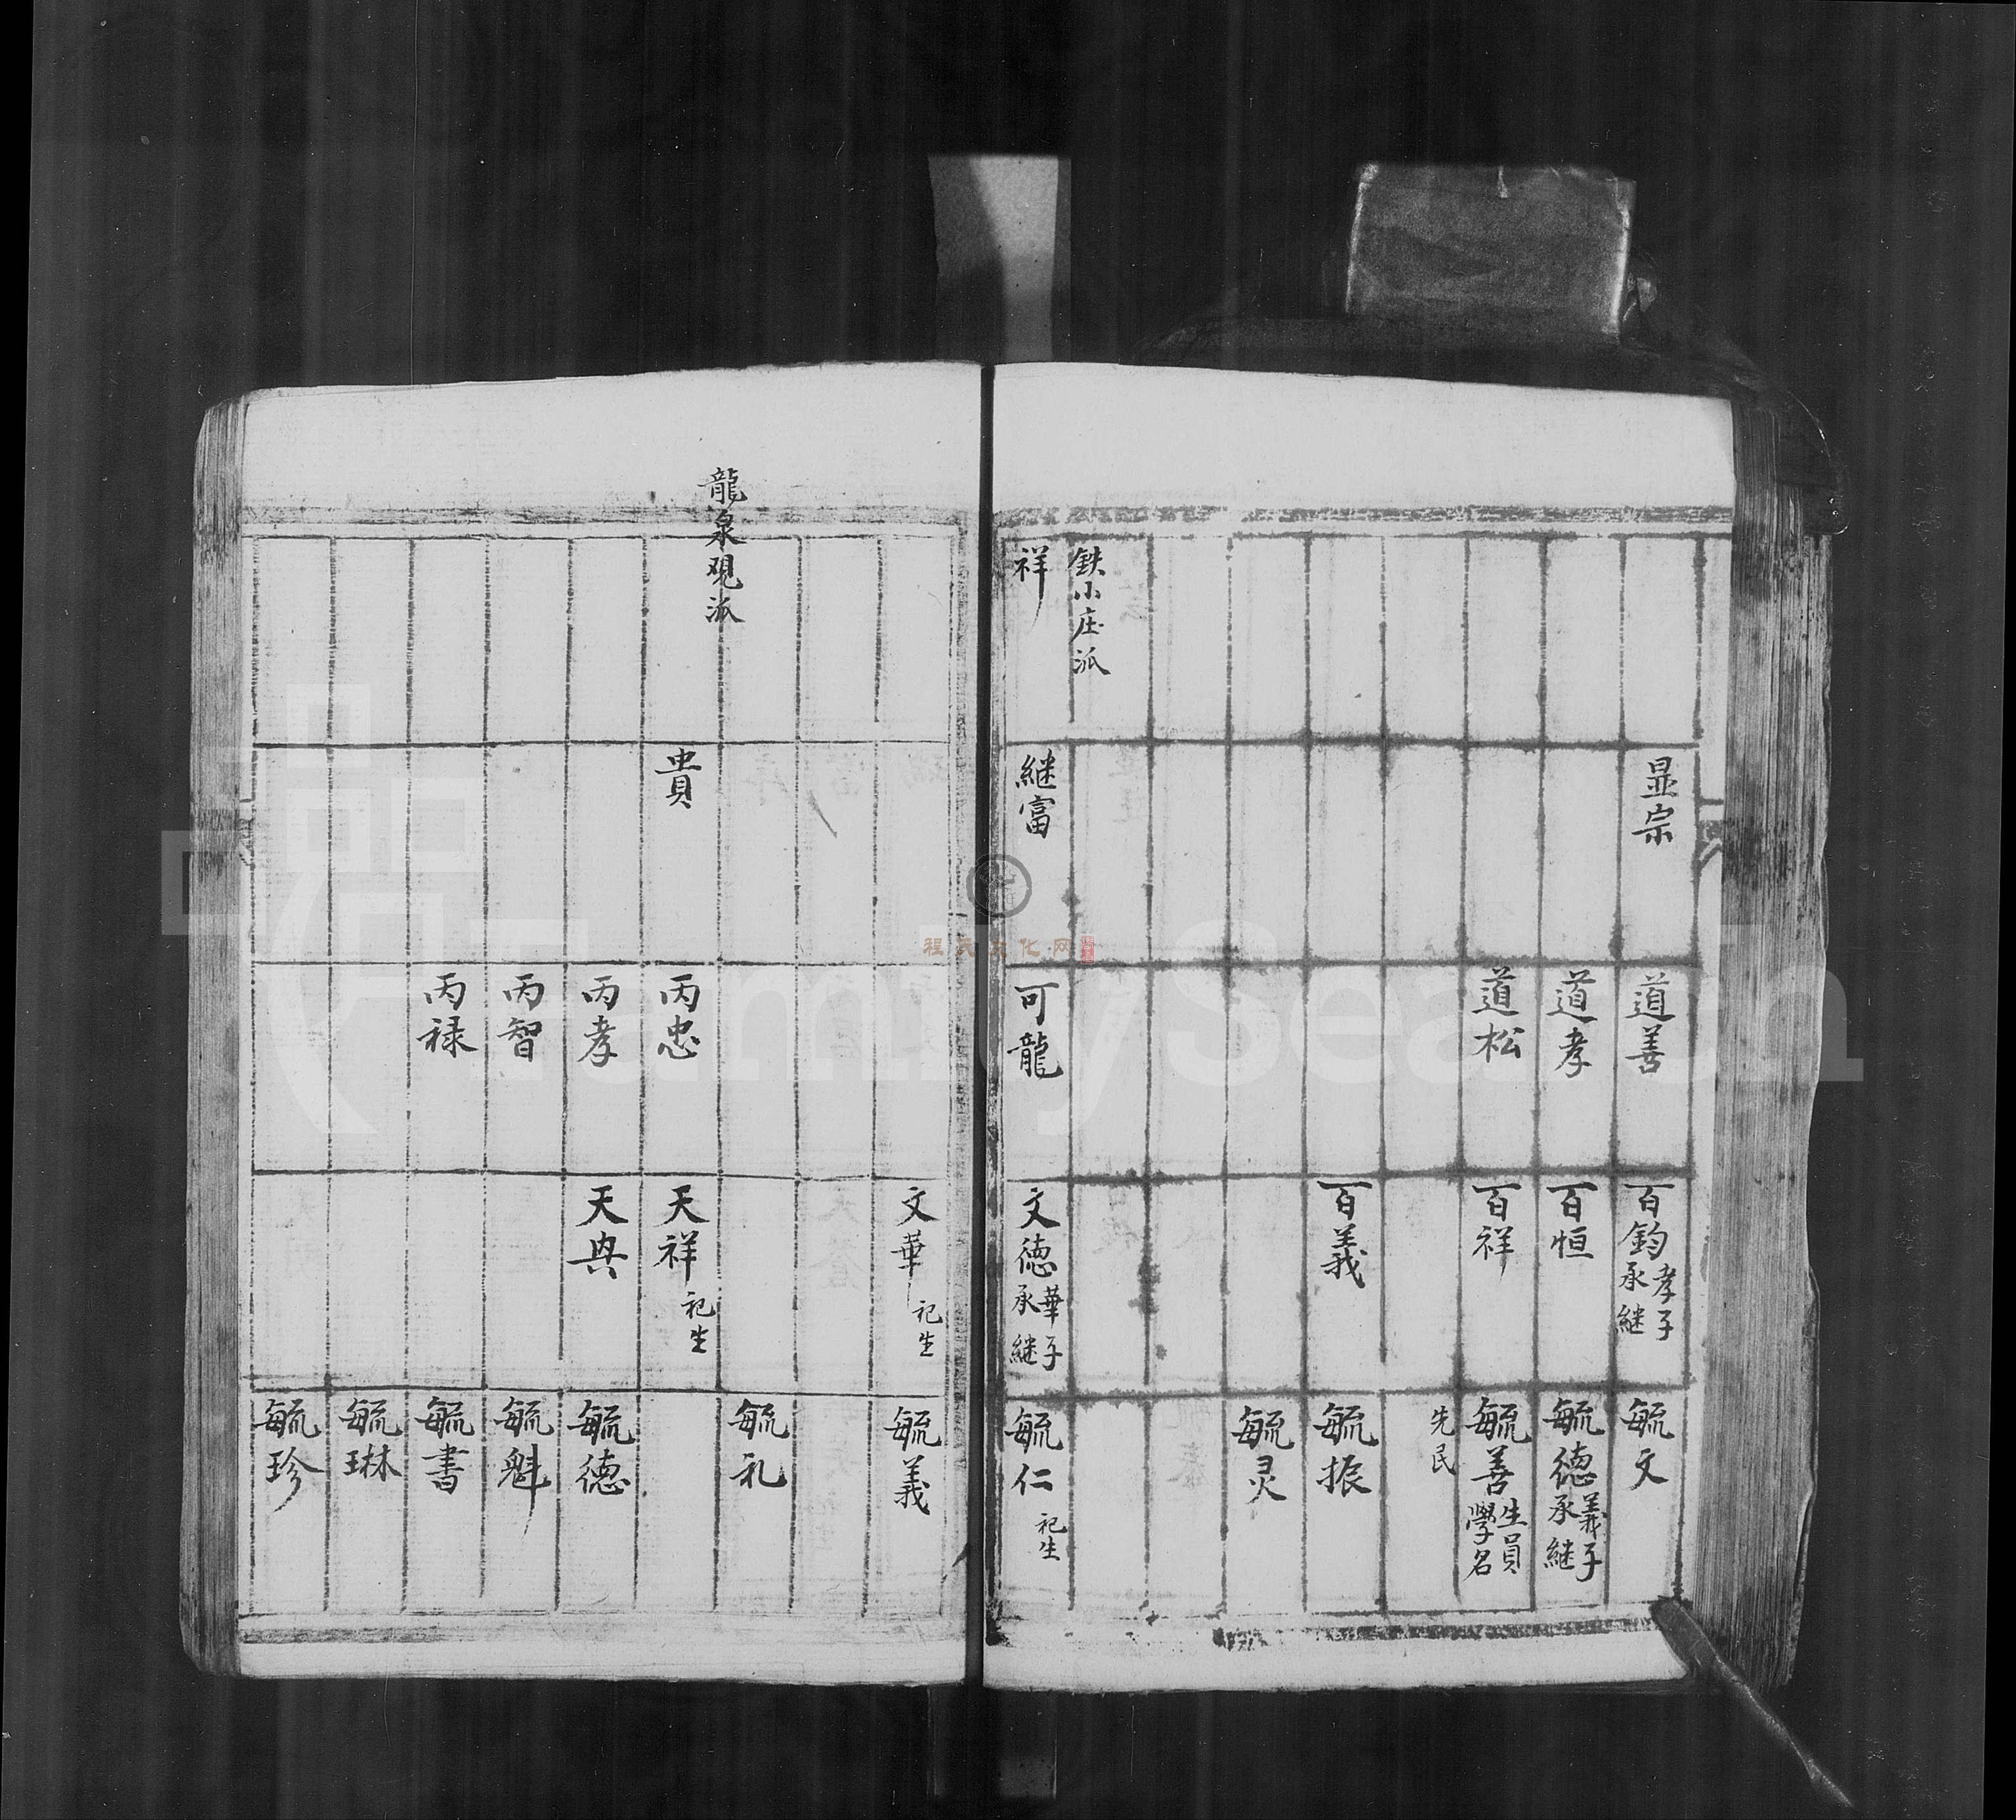 显宗
道善
百鈞 孝子承継
毓文
道孝
百恒
毓德 義子承継
道松
百祥
毓善 生員學名
先民
百義
毓振
毓灵
鉄小庄派
祥
継富
可龍
文德 華子承継
毓仁 祀生
文華 祀生
毓義
龍泉观派
毓礼
貴
丙忠
天祥 祀生
丙孝
天典
毓德
丙智
毓魁
丙禄
毓書
毓琳
毓珍
程氏文化网
FamilySearch